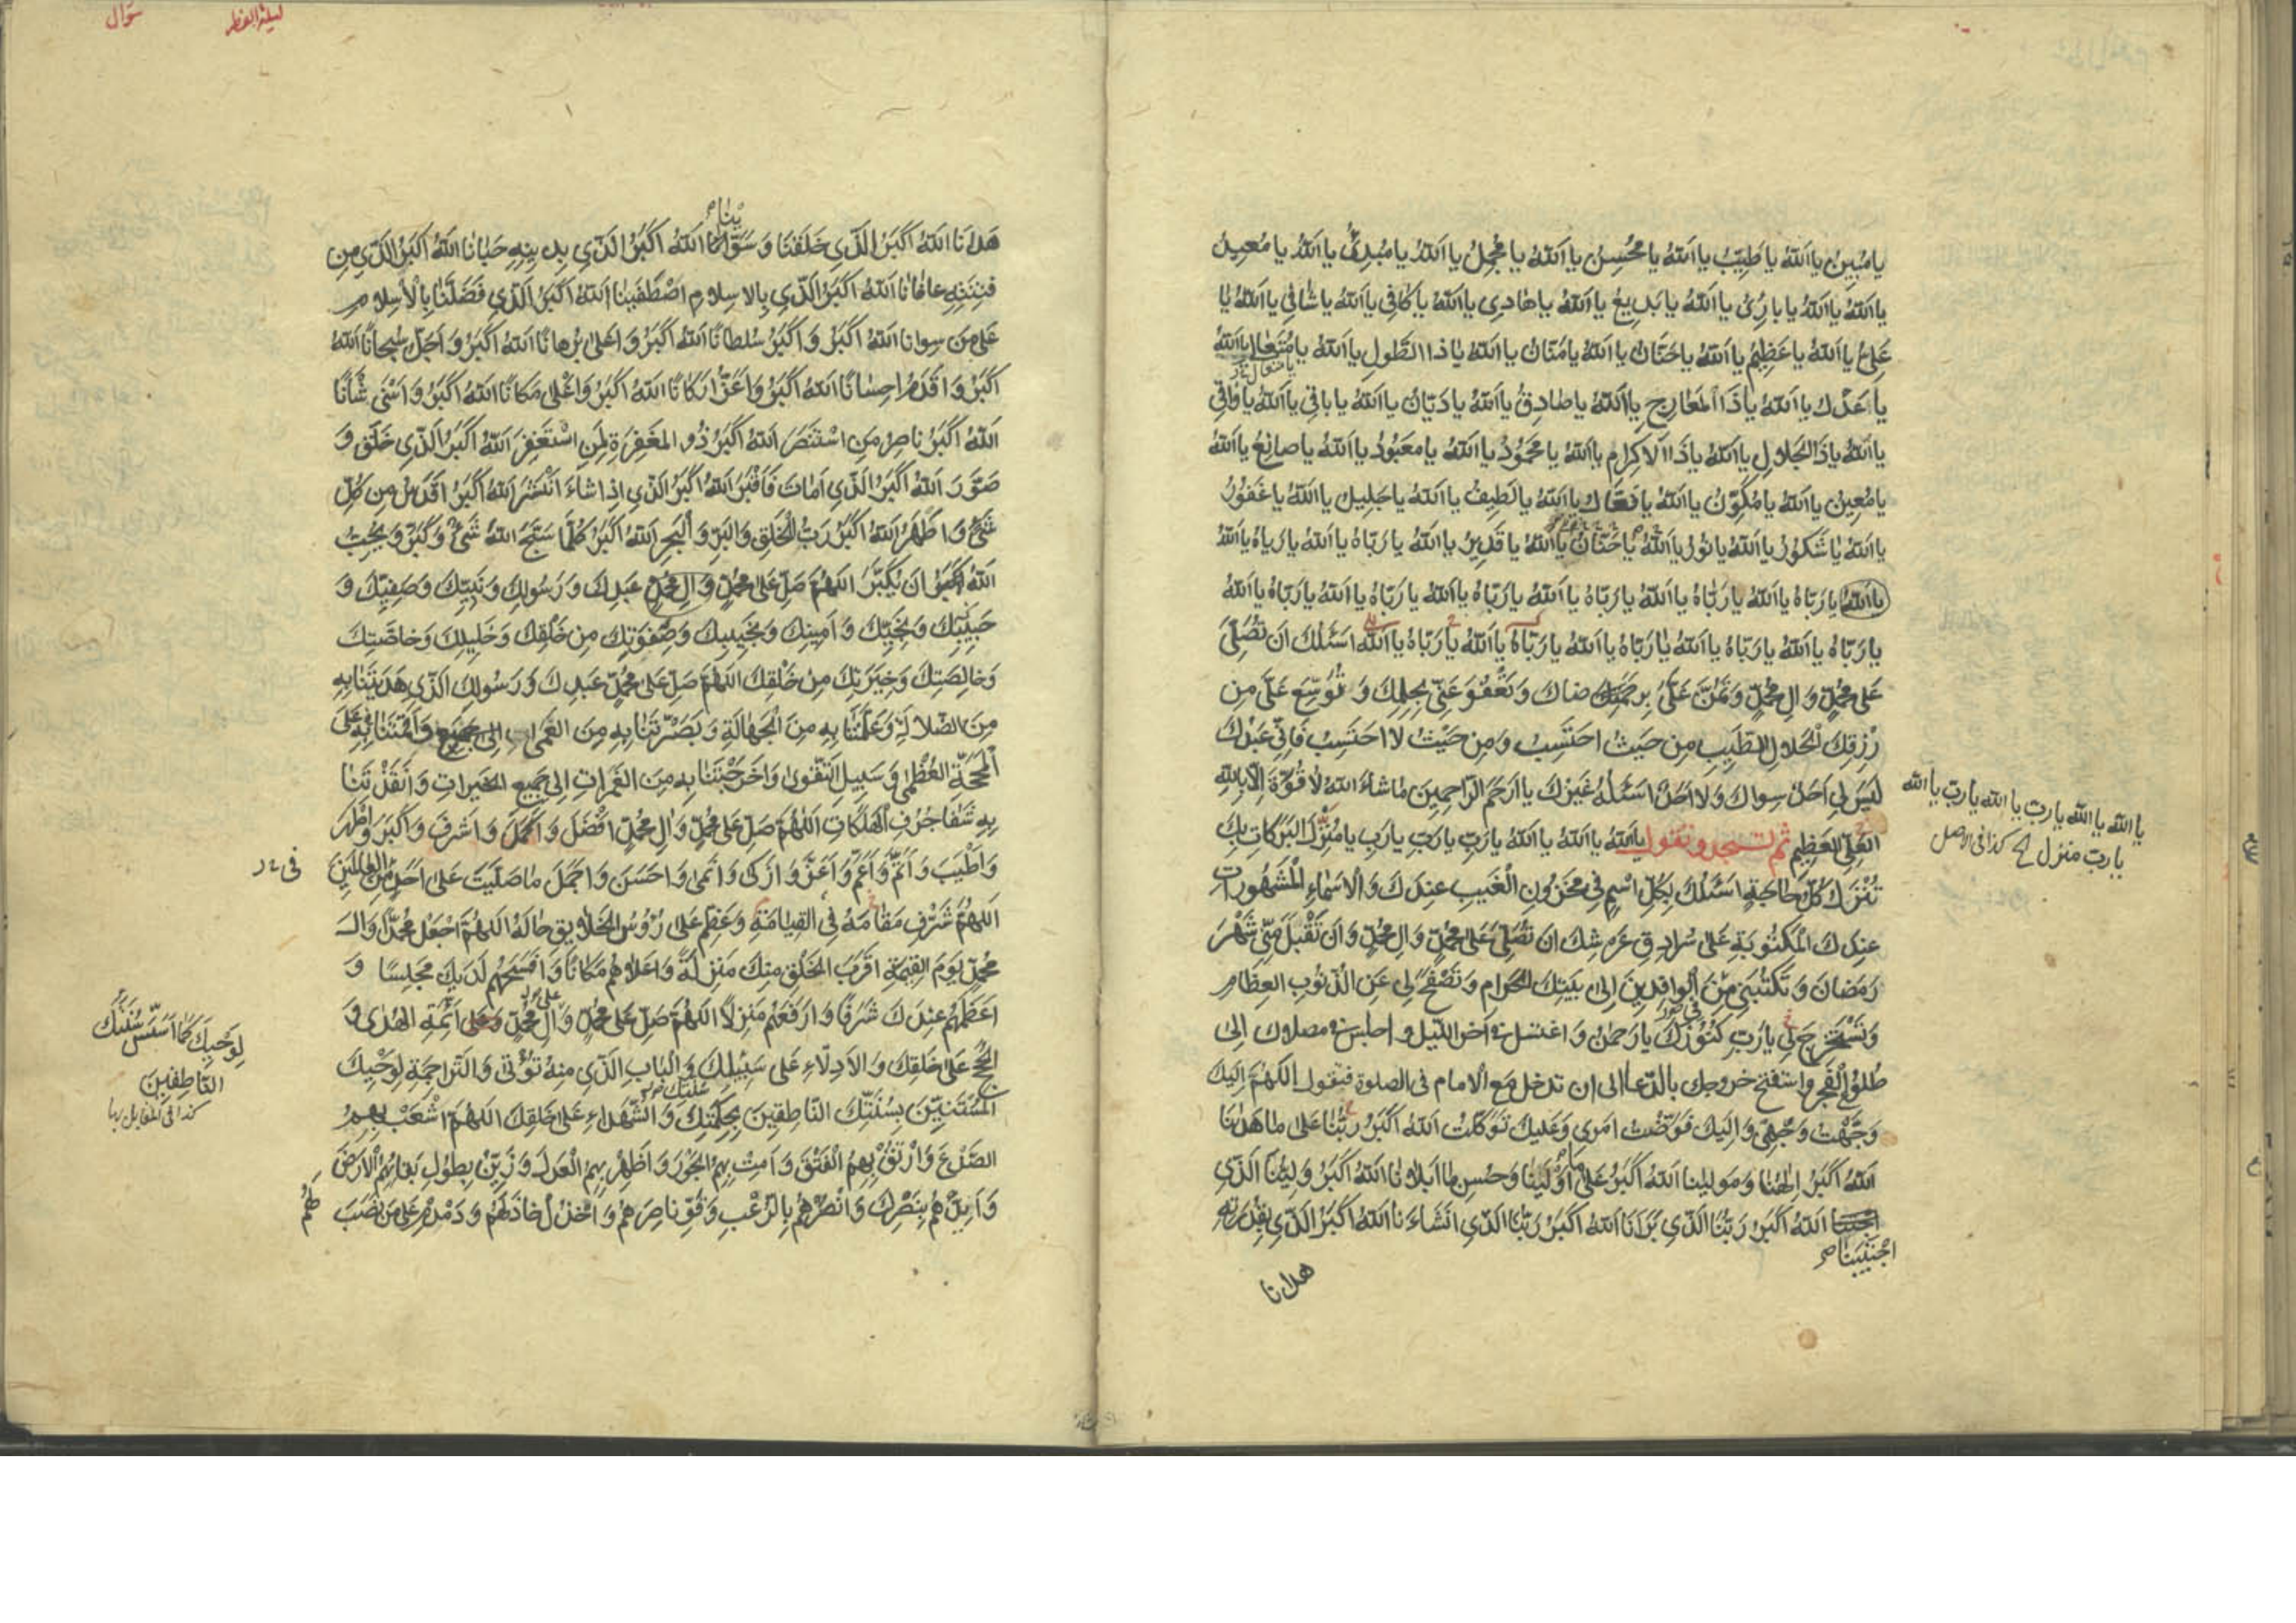 يا مُبِينُ يا اَللّٰهُ يا طَبِيبُ يا اَللّٰهُ يا مُحْسِنُ يا اَللّٰهُ يا مُجْمِلُ يا اَللّٰهُ يا مُبْدِئُ يا اَللّٰهُ يا مُعِيدُ
يا اَللّٰهُ يا اَللّٰهُ يا بارِئُ يا اَللّٰهُ يا بَدِيعُ يا اَللّٰهُ يا هادِى يا اَللّٰهُ يا كافِى يا اَللّٰهُ يا شافِى يا اَللّٰهُ يا
عَلِىُّ يا اَللّٰهُ يا عَظِيمُ يا اَللّٰهُ يا حَنّانُ يا اَللّٰهُ يا مَنّانُ يا اَللّٰهُ يا ذَا الطَّولِ يا اَللّٰهُ يا مُتَعالى يا اَللّٰهُ
يا عَدْلُ يا اَللّٰهُ يا ذَا الْمَعارِجِ يا اَللّٰهُ يا صادِقُ يا اَللّٰهُ يا دَيّانُ يا اَللّٰهُ يا باقِى يا اَللّٰهُ يا واقِى
يا اَللّٰهُ يا ذَا الْجَلالِ يا اَللّٰهُ يا ذَا الْاِكرامِ يا اَللّٰهُ يا مَحْمُودُ يا اَللّٰهُ يا مَعبُودُ يا اَللّٰهُ يا صانِعُ يا اَللّٰهُ
يا مُعِينُ يا اَللّٰهُ يا مُكَوِّنُ يا اَللّٰهُ يا فَعّالُ يا اَللّٰهُ يا لَطِيفُ يا اَللّٰهُ يا جَلِيلُ يا اَللّٰهُ يا غَفُورُ
يا اَللّٰهُ يا شَكُورُ يا اَللّٰهُ يا نُورُ يا اَللّٰهُ يا حَنّانُ يا اَللّٰهُ يا قَدِيرُ يا اَللّٰهُ يا رَبّاهُ يا اَللّٰهُ يا رَبّاهُ يا اَللّٰهُ
يا اَللّٰهُ يا رَبّاهُ يا اَللّٰهُ يا رَبّاهُ يا اَللّٰهُ يا رَبّاهُ يا اَللّٰهُ يا رَبّاهُ يا اَللّٰهُ يا رَبّاهُ يا اَللّٰهُ يا رَبّاهُ يا اَللّٰهُ
يا رَبّاهُ يا اَللّٰهُ يا رَبّاهُ يا اَللّٰهُ يا رَبّاهُ يا اَللّٰهُ يا رَبّاهُ يا اَللّٰهُ يا رَبّاهُ يا اَللّٰهُ اَسْئَلُكَ اَن تُصَلِّىَ
عَلى مُحَمَّدٍ وَ الِ مُحَمَّدٍ وَ تَمُنَّ عَلَىَّ وَ تَعْفُوَ عَنّى بِحِلمِكَ وَ تُوَسِّعَ عَلَىَّ مِن
رِزقِكَ الْحَلالِ الطَّيِّبِ مِن حَيثُ احتَسِبُ وَ مِن حَيْثُ لا احتَسِبُ فَاِنّى عَبْدُكَ
لَيسَ لِى اَحَدٌ سِواكَ وَ لا اَحَدٌ اَسْئَلُهُ غَيْرُكَ يا اَرحَمَ الرّاحِمِينَ ما شاءَ اللّٰهُ لا قُوَّةَ اِلّا بِاللّٰهِ
العَلِىِّ العَظِيمِ ثم تسجد وتقول يا اَللّٰهُ يا اَللّٰهُ يا اَللّٰهُ يا رَبِّ يا رَبِّ يا رَبِّ يا مُنزِلَ البَرَكاتِ بِكَ
تُنْزَلُ كُلُّ حاجَةٍ اَسْئَلُكَ بِكُلِّ اسْمٍ فِى مَخزُونِ الْغَيبِ عِندَكَ وَ الْاَسْماءِ الْمَشْهُوراتِ
عِندَكَ الْمَكتُوبَةِ عَلى سُرادِقِ عَرشِكَ اَن تُصَلِّىَ عَلى مُحَمَّدٍ وَ الِ مُحَمَّدٍ وَ اَن تَقْبَلَ مِنّى شَهْرَ
رَمَضانَ وَ تَكتُبَنِى مِنَ الْوافِدِينَ اِلى بَيتِكَ الحَرامِ وَ تَصْفَحَ لِى عَنِ الذُّنُوبِ العِظامِ
وَ تَسْتَخرِجَ لِى يا رَبِّ كُنُوزَكَ يا رَحمٰنُ وَ اغتسل فى آخر الليل و اجلس فى مصلاك الى
طلوع الفجر و استفتح خروجك بالدعا الى ان تدخل مع الامام فى الصلوة فتقول اللّٰهُمَّ اِلَيكَ
وَجَّهْتُ وَجهِى وَ اِلَيكَ فَوَّضْتُ اَمرِى وَ عَلَيكَ تَوَكَّلتُ اَللّٰهُ اَكْبَرُ رَبُّنا عَلى ما هَدٰنا
اَللّٰهُ اَكبَرُ اِلٰهُنا وَ مَولينا اَللّٰهُ اَكبَرُ عَلى ما اَوْلَينا وَ حُسنِ ما اَبلانا اَللّٰهُ اَكبَرُ وَلِيُّنا الَّذِى
اجْتَبَيْنا اَللّٰهُ اَكبَرُ رَبُّنَا الَّذِى بَرَانا اَللّٰهُ اَكبَرُ رَبُّنَا الَّذِى اَنشَاَنا اَللّٰهُ اَكبَرُ الَّذِى بِقُدرَتِهِ
هدانا
يا الله يا الله يا رب يا الله يا رب يا الله
يا رب منزل كذا فى الاصل
ليلة الفطر
شوال
هَدانا اَللّٰهُ اَكبَرُ الَّذِى خَلَقَنا وَ سَوّانا اَللّٰهُ اَكبَرُ الَّذِى بِدِينِهِ حَبانا اَللّٰهُ اَكبَرُ الَّذِى مِن
فِتنَتِهِ عافانا اَللّٰهُ اَكبَرُ الَّذِى بِالاِسلامِ اصْطَفَينا اَللّٰهُ اَكبَرُ الَّذِى فَضَّلَنا بِالْاِسلامِ
عَلى مَن سِوانا اَللّٰهُ اَكبَرُ وَ اَكبَرُ سُلطانًا اَللّٰهُ اَكبَرُ وَ اَعلى بُرهانًا اَللّٰهُ اَكبَرُ وَ اَجَلُّ سُبحانًا اَللّٰهُ
اَكبَرُ وَ اَقدَمُ اِحسانًا اَللّٰهُ اَكبَرُ وَ اَعَزُّ اَركانًا اَللّٰهُ اَكبَرُ وَ اَعْلى مَكانًا اَللّٰهُ اَكبَرُ وَ اَسْنى شَأنًا
اَللّٰهُ اَكبَرُ ناصِرُ مَنِ اسْتَنصَرَ اَللّٰهُ اَكبَرُ ذُو المَغفِرَةِ لِمَنِ اسْتَغفَرَ اَللّٰهُ اَكبَرُ الَّذِى خَلَقَ وَ
صَوَّرَ اَللّٰهُ اَكبَرُ الَّذِى اَماتَ فَاَقْبَرَ اَللّٰهُ اَكبَرُ الَّذِى اِذا شاءَ اَنْشَرَ اَللّٰهُ اَكبَرُ اَقدَسُ مِن كُلِّ
شَىءٍ وَ اَظْهَرُ اَللّٰهُ اَكبَرُ رَبُّ الْخَلقِ وَ البَرِّ وَ الْبَحرِ اَللّٰهُ اَكبَرُ كُلَّما سَبَّحَ اللّٰهَ شَىءٌ وَ كَبَّرَ وَ يُحِبُّ
اَللّٰهُ اَن يُكَبَّرَ اَللّٰهُمَّ صَلِّ عَلى مُحَمَّدٍ وَ الِ مُحَمَّدٍ عَبدِكَ وَ رَسُولِكَ وَ نَبِيِّكَ وَ صَفِيِّكَ وَ
حَبِيبِكَ وَ نَجِيِّكَ وَ اَمِينِكَ وَ نَجِيبِكَ وَ صَفْوَتِكَ مِن خَلْقِكَ وَ خَلِيلِكَ وَ خاصَّتِكَ
وَ خالِصَتِكَ وَ خِيَرَتِكَ مِن خَلْقِكَ اَللّٰهُمَّ صَلِّ عَلى مُحَمَّدٍ عَبدِكَ وَ رَسُولِكَ الَّذِى هَدَيتَنا بِهِ
مِنَ الضَّلالَةِ وَ عَلَّمتَنا بِهِ مِنَ الْجَهالَةِ وَ بَصَّرتَنا بِهِ مِنَ العَمى وَ اَقَمتَنا بِهِ عَلَى
الْمَحَجَّةِ العُظْمى وَ سَبِيلِ التَّقْوى وَ اَخرَجْتَنا بِهِ مِنَ الغَمَراتِ اِلى جَمِيعِ الخَيراتِ وَ اَنْقَذْتَنا
بِهِ مِن شَفا جُرُفِ الْهَلَكاتِ اَللّٰهُمَّ صَلِّ عَلى مُحَمَّدٍ وَ الِ مُحَمَّدٍ اَفْضَلَ وَ اَكمَلَ وَ اَشرَفَ وَ اَكبَرَ وَ اَطْهَرَ
وَ اَطْيَبَ وَ اَتَمَّ وَ اَعَمَّ وَ اَعَزَّ وَ اَزكى وَ اَنمى وَ اَحسَنَ وَ اَجمَلَ ما صَلَّيتَ عَلى اَحَدٍ مِنَ العالَمِينَ
اَللّٰهُمَّ شَرِّف مَقامَهُ فِى القِيامَةِ وَ عَظِّم عَلى رُؤُسِ الخَلايِقِ حالَهُ اَللّٰهُمَّ اجْعَل مُحَمَّدًا وَ الَ
مُحَمَّدٍ يَومَ القِيٰمَةِ اَقرَبَ الخَلْقِ مِنكَ مَنزِلَةً وَ اَعلاهُم مَكانًا وَ اَفسَحَهُم لَدَيكَ مَجلِسًا وَ
اَعظَمَهُم عِندَكَ شَرَفًا وَ اَرفَعَهُم مَنزِلًا اَللّٰهُمَّ صَلِّ عَلى مُحَمَّدٍ وَ الِ مُحَمَّدٍ وَ عَلى اَئِمَّةِ الهُدى وَ
الحُجَجِ عَلى خَلقِكَ وَ الاَدِلّاءِ عَلى سَبِيلِكَ وَ البابِ الَّذِى مِنهُ تُؤْتى وَ التَّراجِمَةِ لِوَحْيِكَ
المُسْتَنِّينَ بِسُنَّتِكَ النّاطِقِينَ بِحِكمَتِكَ وَ الشُّهَداءِ عَلى خَلقِكَ اَللّٰهُمَّ اشْعَبْ بِهِمُ
الصَّدْعَ وَ ارْتُقْ بِهِمُ الْفَتْقَ وَ اَمِتْ بِهِمُ الجَوْرَ وَ اَظهِرْ بِهِمُ الْعَدلَ وَ زَيِّنْ بِطُولِ بَقائِهِمُ الْاَرضَ
وَ اَيِّدْهُم بِنَصْرِكَ وَ انْصُرهُم بِالرُّعْبِ وَ قَوِّ ناصِرَهُم وَ اخذُل خاذِلَهُم وَ دَمدِم عَلى مَن نَصَبَ
لَهُم
لِوَحيِكَ كَما اسْتَنَّ سُنَّتَكَ
النّاطِقِينَ
كذا فى المقابل بها